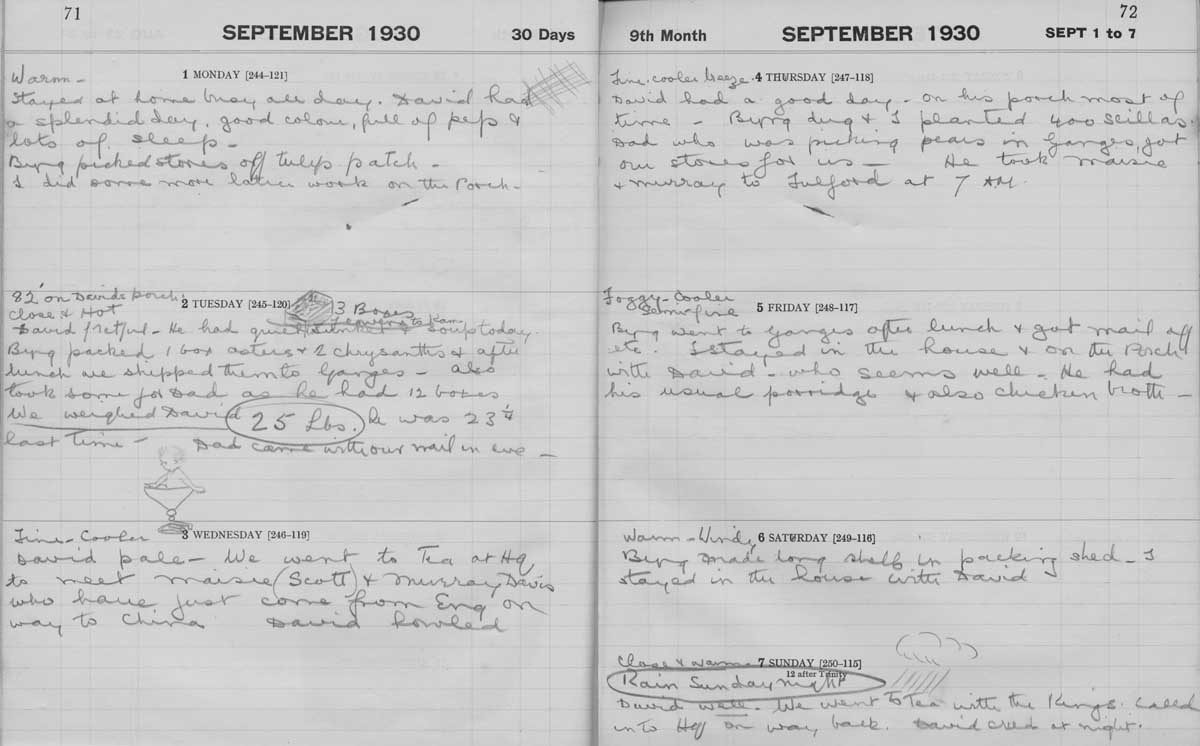 71
SEPTEMBER 1930
30 Days
Warm -
1 MONDAY [244-121]
Stayed at home busy all day. David had
a splendid day, good colour, full of peps &
lots of sleep -
Byng picked stones off tulip patch -
I did some more lattice work on the Porch -
82° on Davids porch.
Close & Hot
2 TUESDAY [245-120]
3 Boxes
David fretful - He had quite soup today.
Byng packed 1 box asters & 2 chrysanths & after
lunch we shipped them to Ganges - also
took some for Dad as he had 12 boxes
We weighed David 25 Lbs. he was 23 1/4
last time - Dad came with our mail in eve -
Fine - Cooler
3 WEDNESDAY [246-119]
David pale - We went to Tea at HQ
to meet Maisie (Scott) & Murray Davis
who have just come from Eng on
way to China David howled
72
9th Month
SEPTEMBER 1930
SEPT 1 to 7
Fine. cooler breeze.
4 THURSDAY [247-118]
David had a good day - on his porch most of
time - Byng dug & I planted 400 scillas.
Dad who was picking pears in Ganges, got
our stores for us - He took Maisie
& Murray to Fulford at 7 AM.
Foggy - Cooler
Semi fine
5 FRIDAY [248-117]
Byng went to Ganges after lunch & got mail off
etc. I stayed in the house & on the Porch
with David - who seems well - He had
his usual porridge & also chicken broth -
Warm - Windy
6 SATURDAY [249-116]
Byng made long shelf in packing shed - I
stayed in the house with David
Close & warm
7 SUNDAY [250-115]
12 after Trinity
Rain Sunday night
David well. We went to Tea with the Kings. Called
in to HQ on way back. David cried at night.